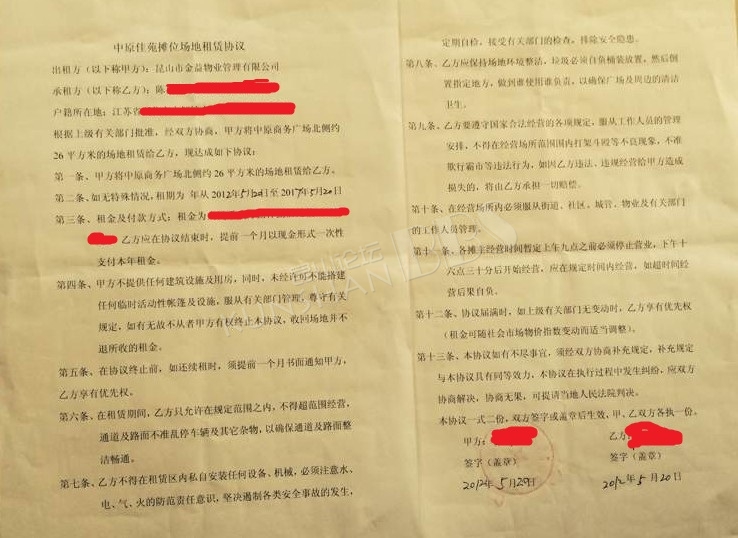 中原佳苑摊位场地租赁协议
出租方（以下称甲方）：昆山市金益物业管理有限公司
承租方（以下称乙方）：陈
户籍所在地：江苏省
根据上级有关部门批准，经双方协商，甲方将中原商务广场北侧约
26 平方米的场地租赁给乙方，现达成如下协议：
第一条、甲方将中原商务广场北侧约 26 平方米的场地租赁给乙方。
第二条、如无特殊情况，租期为 年从 2012年5月20日至2017年5月20日
第三条、租金及付款方式：租金为
乙方应在协议结束时，提前一个月以现金形式一次性
支付本年租金。
第四条、甲方不提供任何建筑设施及用房，同时，未经许可不能搭建
任何临时活动性帐篷及设施，服从有关部门管理，尊守有关
规定，如有无故不从者甲方有权终止本协议，收回场地并不
退所收的租金。
第五条、在协议终止前，如连续租时，须提前一个月书面通知甲方，
乙方享有优先权。
第六条、在租赁期间，乙方只允许在规定范围之内，不得超范围经营，
通道及路面不准乱停车辆及其它杂物，以确保通道及路面整
洁畅通。
第七条、乙方不得在租赁区内私自安装任何设备、机械，必须注意水、
电、气、火的防范责任意识，坚决遏制各类安全事故的发生，
定期自检，接受有关部门的检查，排除安全隐患。
第八条、乙方应保持场地环境整洁，垃圾必须自备桶装放置，然后倒
置指定地方，做到谁使用谁负责，以确保广场及周边的清洁
卫生。
第九条、乙方要遵守国家合法经营的各项规定，服从工作人员的管理
安排，不得在经营场所范围围内打架斗殴等不良现象，不准
欺行霸市等违法行为，如因乙方违法、违规经营给甲方造成
损失的，将由乙方承担一切赔偿。
第十条、在经营场所内必须服从街道、社区、城管、物业及有关部门
的工作人员管理。
第十一条、各摊主经营时间暂定上午九点之前必须停止营业，下午十
六点三十分后开始经营，应在规定时间内经营，如超时间经
营后果自负。
第十二条、协议届满时，如上级有关部门无变动时，乙方享有优先权
（租金可随社会市场物价指数变动而适当调整）。
第十三条、本协议如有不尽事宜，须经双方协商补充规定，补充规定
与本协议具有同等效力、本协议在执行过程中发生纠纷，应双方
协商解决，协商无果，可提请当地人民法院判决。
本协议一式二份，双方签字或盖章后生效，甲、乙双方各执一份。
甲方： 乙方：
签字（盖章） 签字（盖章）
2012年5月20日 2012年5月20日